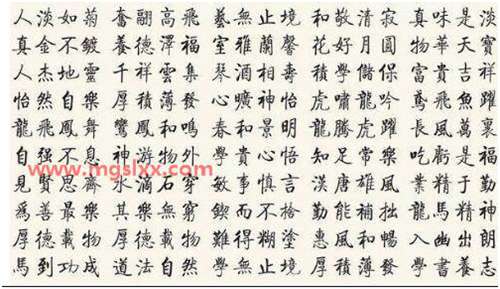 人淡如菊 奮翮高飛 藝無止境 和敬清寂 真味是淡
真金不鍍 養德澤福 室雅蘭馨 花好月圓 物華天寶
人杰地靈 千祥雲集 琴酒相壽 積學儲保 富貴吉祥
怡然自樂 厚積薄發 心曠神怡 虎嘯龍吟 鳶飛魚躍
龍飛鳳舞 鸞鳳和鳴 春和景明 龍騰虎躍 長風萬裏
自強不息 神游物外 學貴心悟 知足常樂 吃虧是福
www.mgslxx.com
見賢思齊 水滴石穿 敏事慎言 漢唐雄風 業精于勤
爲善最樂 其樂無窮 鍥而不捨 勤能補拙 龍馬精神
厚德載物 難得糊塗 惠風和暢 入幽出朗
馬到功成 道法自然 學無止境 厚積薄發 學書養志